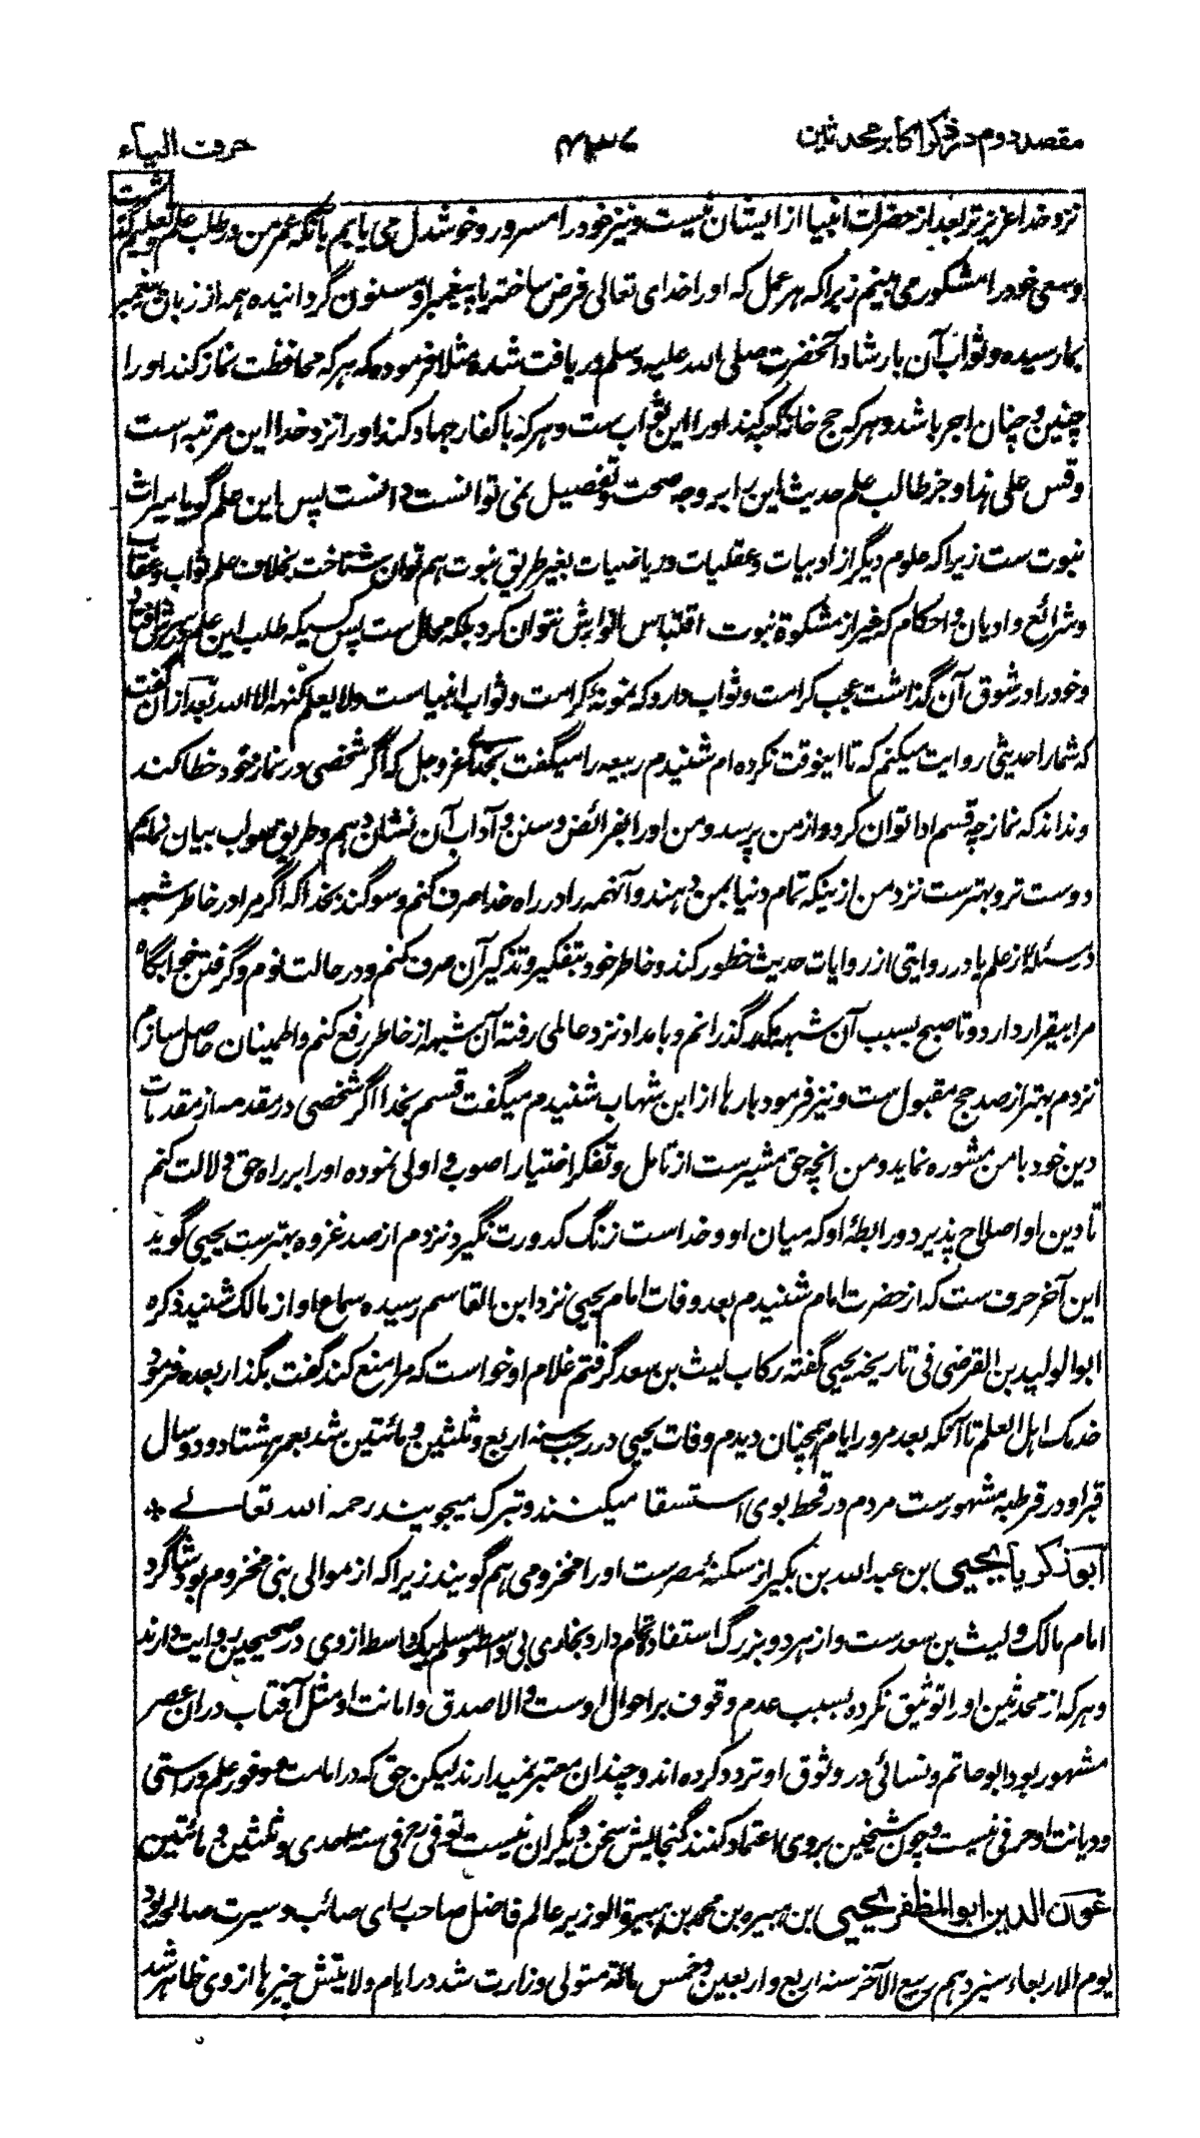 مقصد دوم در ذکر اکابر محدثین ۴۳۷ حرف الیاء
نزد خدا عزیز تر بعد از حضرات انبیا از ایشان نیست و نیز خود را مسرور و خوشدل می یابم بآنکه عمر من در طلب علم و تعلیم گذشت
و سعی خود را مشکور می بینم زیرا که هر عمل که او را خدای تعالی فرض ساخته یا پیغمبر او مسنون گردانیده همه از زبان پیغمبر
بما رسیده و ثواب آن بارشاد آنحضرت صلی الله علیه وسلم دریافت شده مثلا فرموده که هر که محافظت نماز کند او را
چنین و چنان اجر باشد و هر که حج خانه کعبه کند او را این ثواب ست و هر که با کفار جهاد کند او را نزد خدا این مرتبه است
وقس علی هذا و جز طالب علم حدیث این را بر وجه صحت و تفصیل نمی توانست دانست پس این علم گویا میراث
نبوت ست زیرا که علوم دیگر از ادبیات و عقلیات و ریاضیات بغیر طریق نبوت هم توان شناخت بخلاف علم ثواب و عقاب
و شرائع و ادیان و احکام که غیر از مشکوة نبوت اقتباس انوارش نتوان کرد بلکه محال ست پس کسیکه طلب این علم در سرش افتاد
و خود را در شوق آن گذاشت عجب کرامت و ثواب دارد که نمونه کرامت و ثواب انبیاست ولا یعلم کنهه الا الله بعد ازان گفت
که شما را حدیثی روایت میکنم که تا اینوقت نکرده ام شنیدم ربیعه را میگفت بخدای عزوجل که اگر شخصی در نماز خود خطا کند
و نداند که نماز چه قسم ادا توان کرد و از من پرسد و من او را بفرائض و سنن و آداب آن نشان دهم و طریق صواب بیان نمایم
دوست تر و بهترست نزد من ازینکه تمام دنیا بمن دهند و آنهمه را در راه خدا صرف کنم و سوگند بخدا که اگر مرا در خاطر شبهه
در مسئله از علم یا در روایتی از روایات حدیث خطور کند و خاطر خود بتفکیر و تذکیر آن صرف کنم و در حالت نوم و گرفتن خوابگاه
مرا بیقرار دارد و تا صبح بسبب آن شبهه مکدر گذرانم و بامداد نزد عالمی رفته آن شبهه از خاطر رفع کنم و اطمینان حاصل سازم
نزدم بهتر از صد حج مقبول ست و نیز فرمود بارها از ابن شهاب شنیدم میگفت قسم بخدا اگر شخصی در مقدمه از مقدمات
دین خود با من مشوره نماید و من انچه حق مشیرست از تامل و تفکر اختیار اصوب و اولی نموده او را بر راه حق دلالت کنم
تا دین او اصلاح پذیرد و رابطهٔ او که میان او و خداست زنگ کدورت نگیرد نزدم از صد غزوه بهترست یحیی گوید
این آخر حرف ست که از حضرت امام شنیدم بعد وفات امام یحیی نزد ابن القاسم رسیده سماع او از مالک شنید ذکره
ابوالولید بن الفرضی فی تاریخه یحیی گفته رکاب لیث بن سعد گرفتم غلام او خواست که مرا منع کند گفت بگذار بعده فرمود
خدمک اهل العلم تا آنکه بعد مرور ایام همچنان دیدم وفات یحیی در رجب سنه اربع و ثلثین و مائتین شد بعمر هشتاد و دو سال
قبر او در قرطبه مشهورست مردم در قحط بوی استسقا میکنند و تبرک میجویند رحمه الله تعالے *
ابو زکریا یحیی بن عبدالله بن بکیر از سکنهٔ مصرست او را مخزومی هم گویند زیرا که از موالی بنی مخزوم بود شاگرد
امام مالک و لیث بن سعدست و از هر دو بزرگ استفادهٔ تام دارد بخاری بی واسطه و مسلم بیک واسطه از وی در صحیحین روایت دارند
و هر که از محدثین او را توثیق نکرده بسبب عدم وقوف بر احوال اوست و الا صدق و امانت او مثل آفتاب دران عصر
مشهور بود ابوحاتم و نسائی در وثوق او تردد کرده اند و چندان معتبر نمیدارند لیکن حق که در امامت و وفور علم و راستی
و دیانت او حرفی نیست و چون شیخین بر وی اعتماد کنند گنجایش سخن دیگران نیست توفی رح فی سنه احدی و ثلثین و مائتین
عون الدین ابو المظفر یحیی بن هبیره بن محمد بن هبیرة الوزیر عالم فاضل صاحب رای صائب و سیرت صالحه بود
یوم الاربعاء سیزدهم ربیع الآخر سنه اربع و اربعین و خمس مائة متولی وزارت شد در ایام ولایتش چیزها از وی ظاهر شد